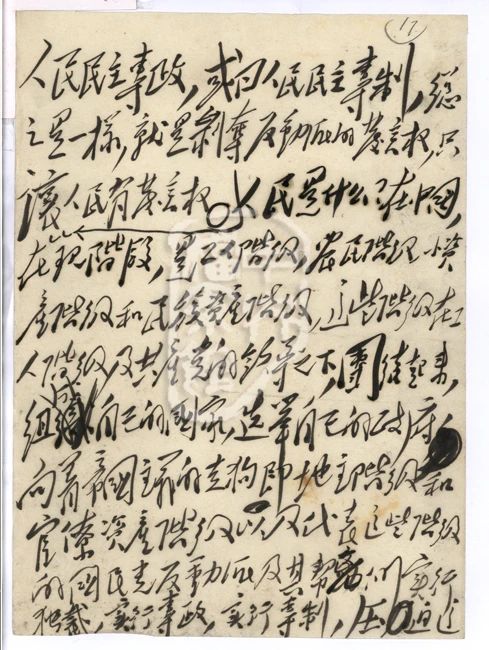 17
人民民主專政，或曰人民民主專制，總
之是一樣，就是剝奪反動派的發言權，只
讓人民有發言權。人民是什么？在中國，
在現階段，是工人階級，農民階級，小資
產階級和民族資產階級。這些階級在工
人階級及共產黨的領導之下，團結起來，
組成自己的國家，選舉自己的政府，
向着帝國主義的走狗即地主階級和
官僚資產階級以及代表這些階級
的國民黨反動派及其幫兇們實行
獨裁，實行專政，實行專制，壓迫這